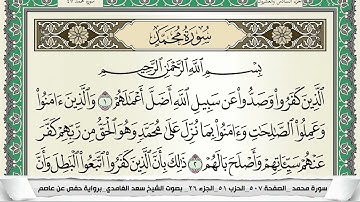 سُورَةُ مُحَمَّدٍ
بِسْمِ اللَّهِ الرَّحْمَٰنِ الرَّحِيمِ
الَّذِينَ كَفَرُوا وَصَدُّوا عَن سَبِيلِ اللَّهِ أَضَلَّ أَعْمَالَهُمْ ١ وَالَّذِينَ ءَامَنُوا
وَعَمِلُوا الصَّالِحَاتِ وَءَامَنُوا بِمَا نُزِّلَ عَلَىٰ مُحَمَّدٍ وَهُوَ الْحَقُّ مِن رَّبِّهِمْ كَفَّرَ
عَنْهُمْ سَيِّئَاتِهِمْ وَأَصْلَحَ بَالَهُمْ ٢ ذَٰلِكَ بِأَنَّ الَّذِينَ كَفَرُوا اتَّبَعُوا الْبَاطِلَ وَأَنَّ
سورة محمد _ الصفحة ٥٠٧ _ الحزب ٥١ _ الجزء ٢٦ _ بصوت الشيخ سعد الغامدي _ برواية حفص عن عاصم